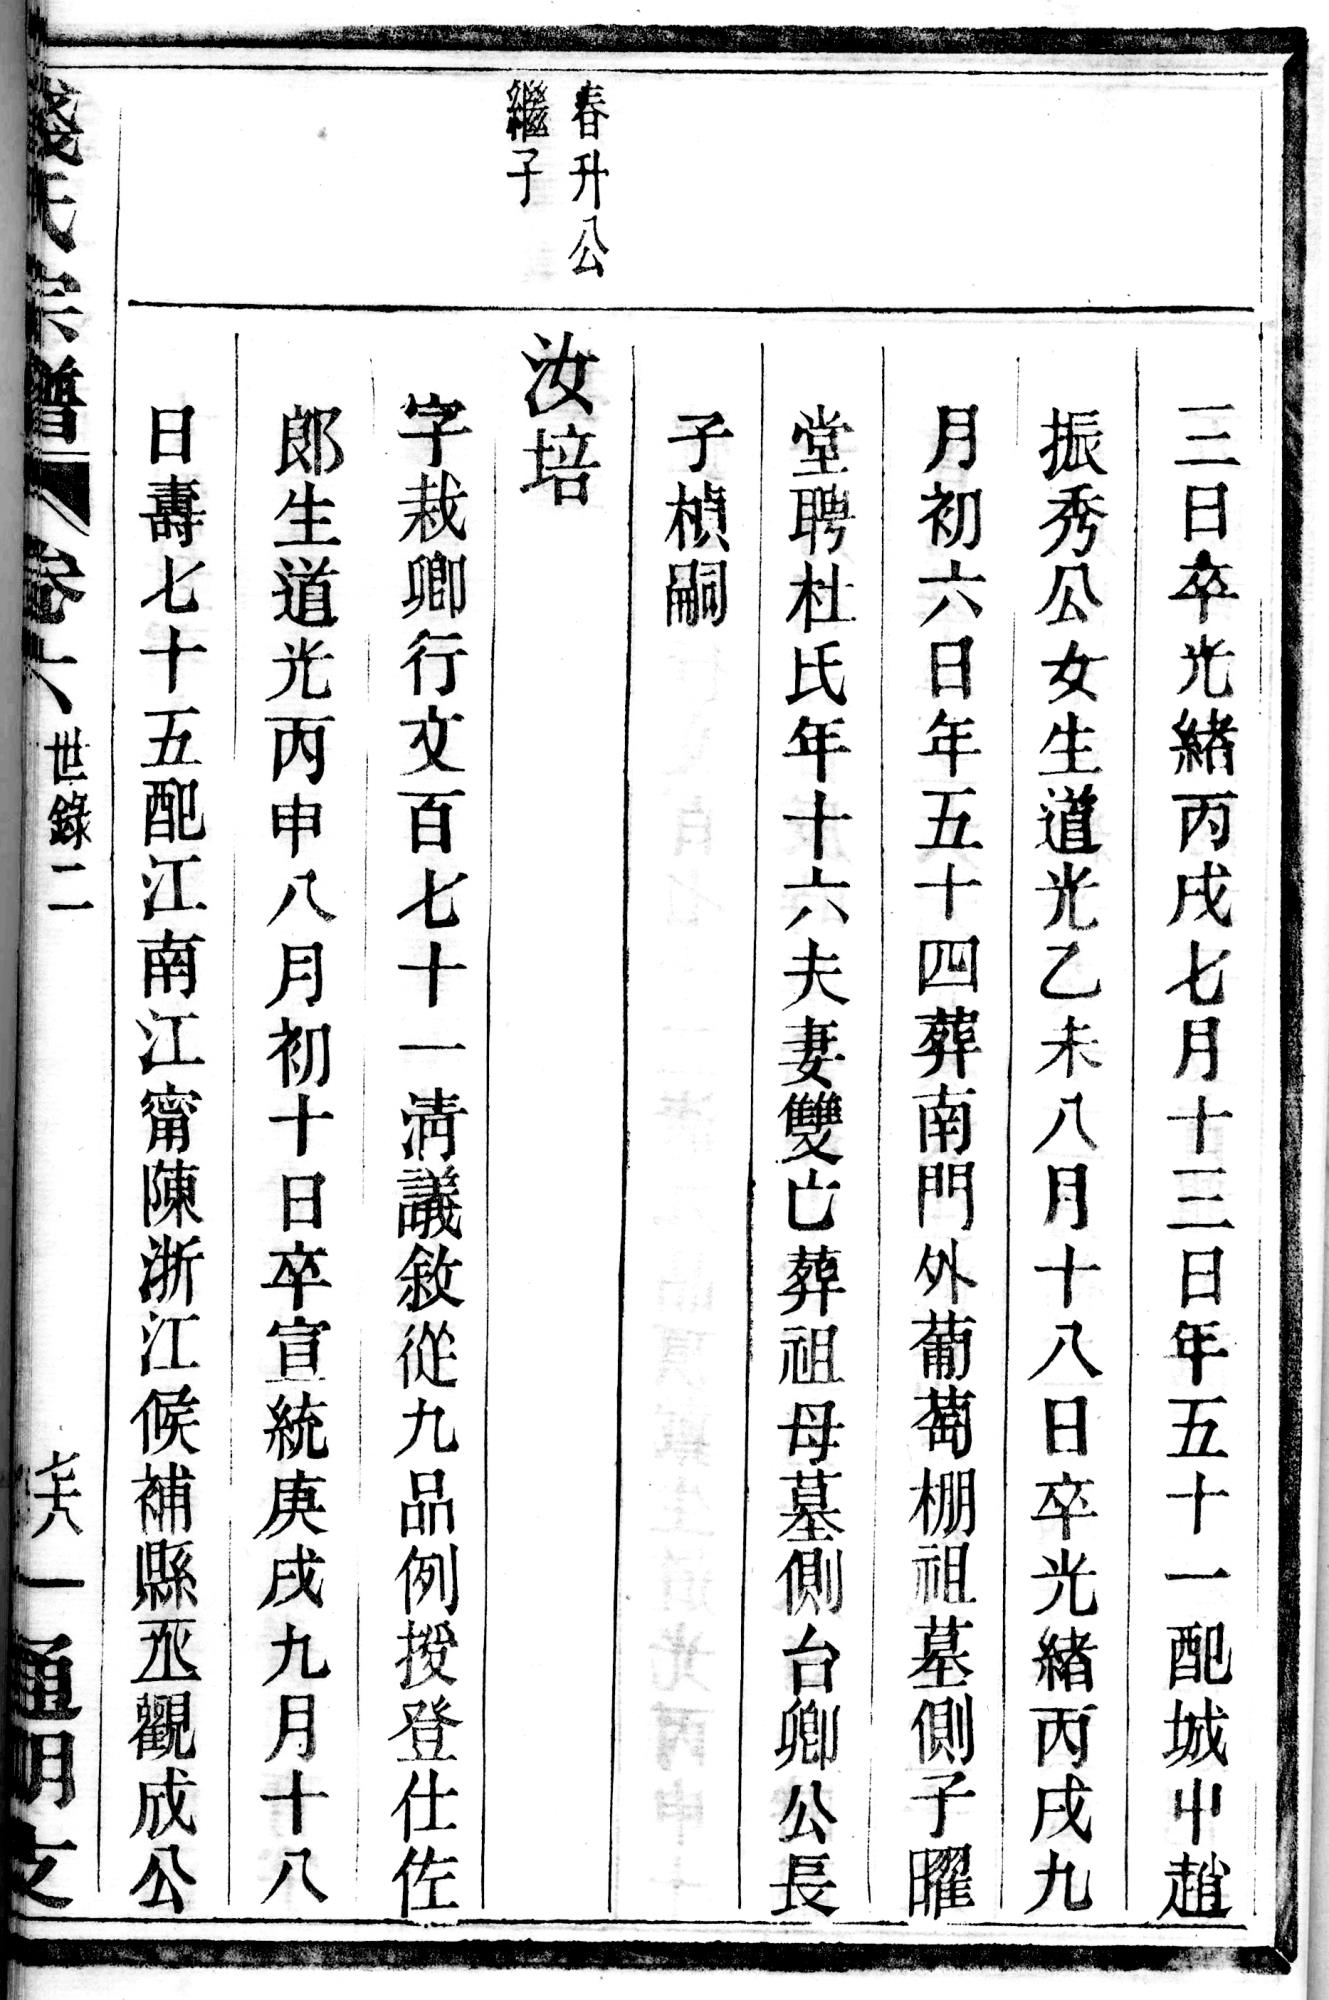 三日卒光緒丙戌七月十三日年五十一配城中趙
振秀公女生道光乙未八月十八日卒光緒丙戌九
月初六日年五十四葬南門外葡萄棚祖墓側子曜
堂聘杜氏年十六夫妻雙亡葬祖母墓側台卿公長
子楨嗣
春升公
繼子
汝培
字栽卿行文百七十一清議敘從九品例授登仕佐
郎生道光丙申八月初十日卒宣統庚戌九月十八
日壽七十五配江南江甯陳浙江候補縣丞觀成公
錢氏宗譜
卷六
世錄二
通明支